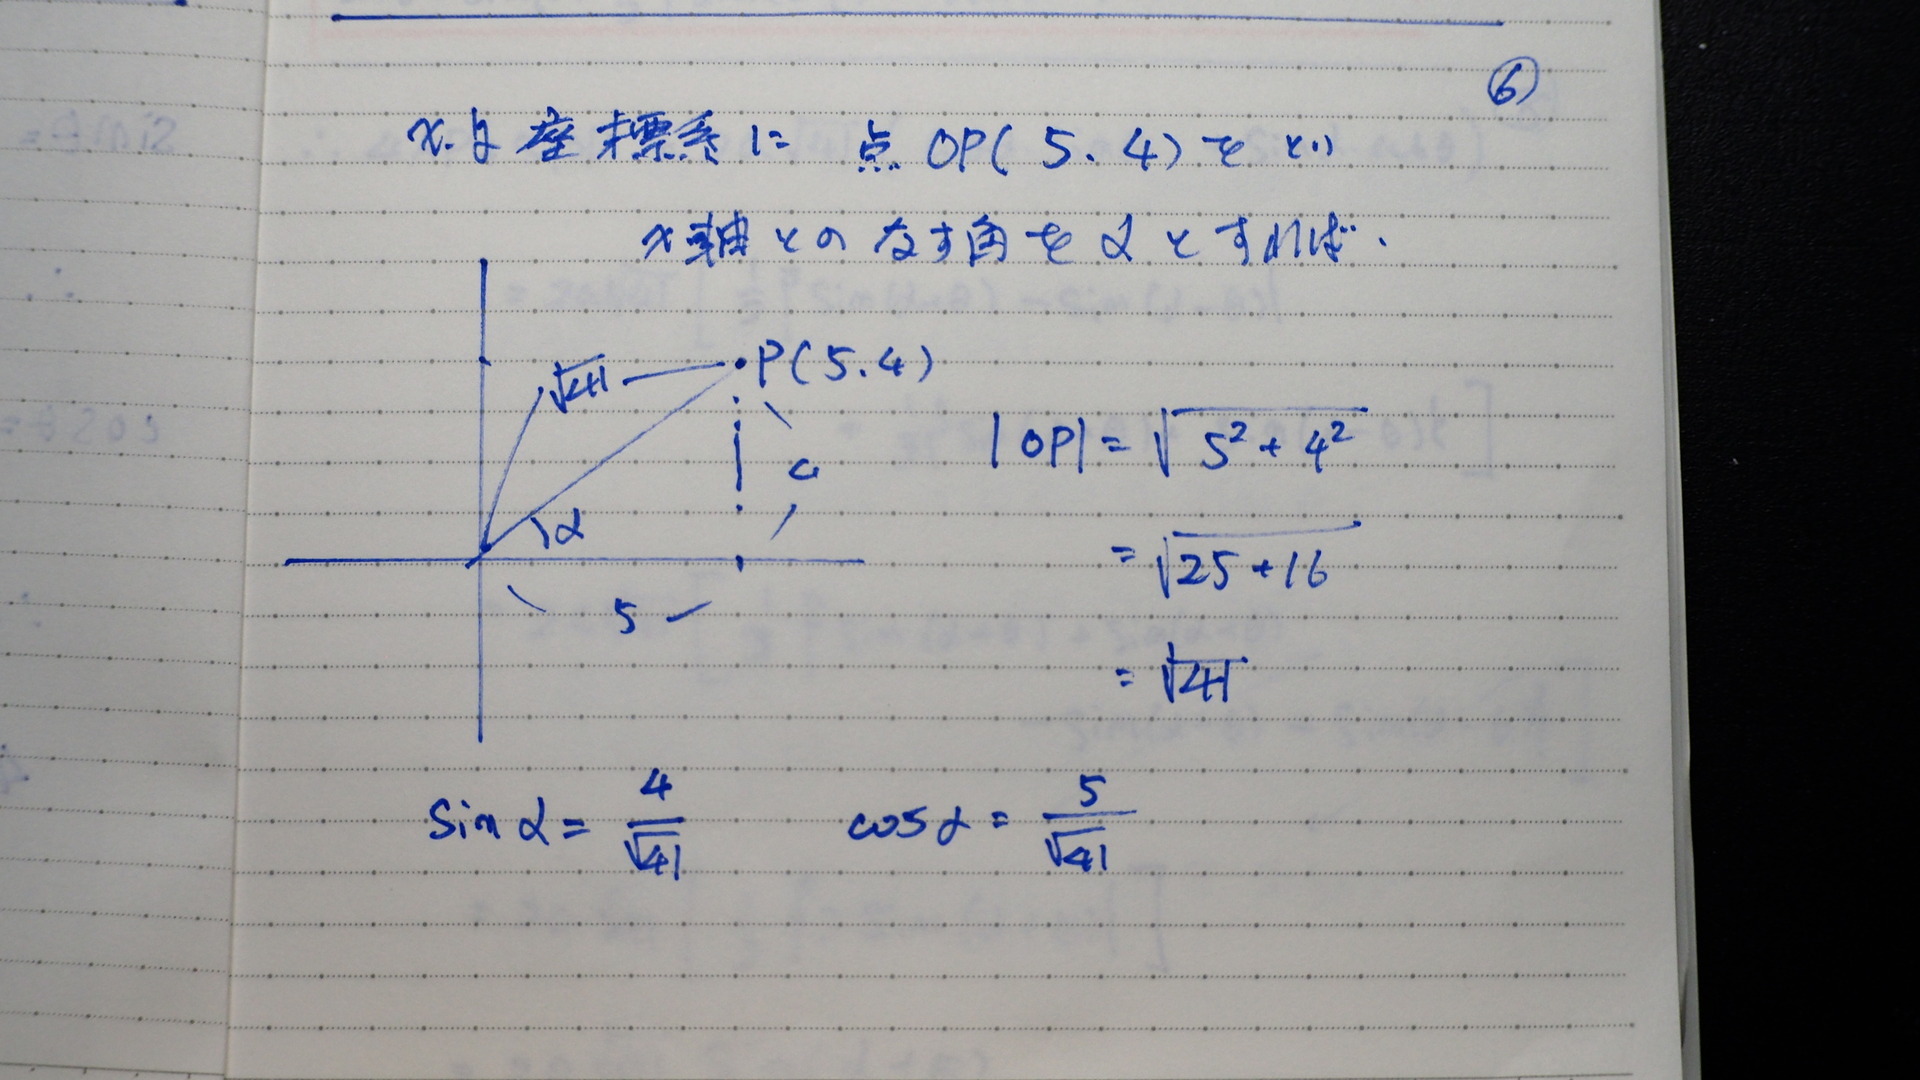 ⑥
x.y 座標系に 点 OP(5.4)をとり
x軸とのなす角をαとすれば.
√41
P(5.4)
|OP| = √5²+4²
α
= √25+16
5
= √41
sin α = 4/√41 cos α = 5/√41